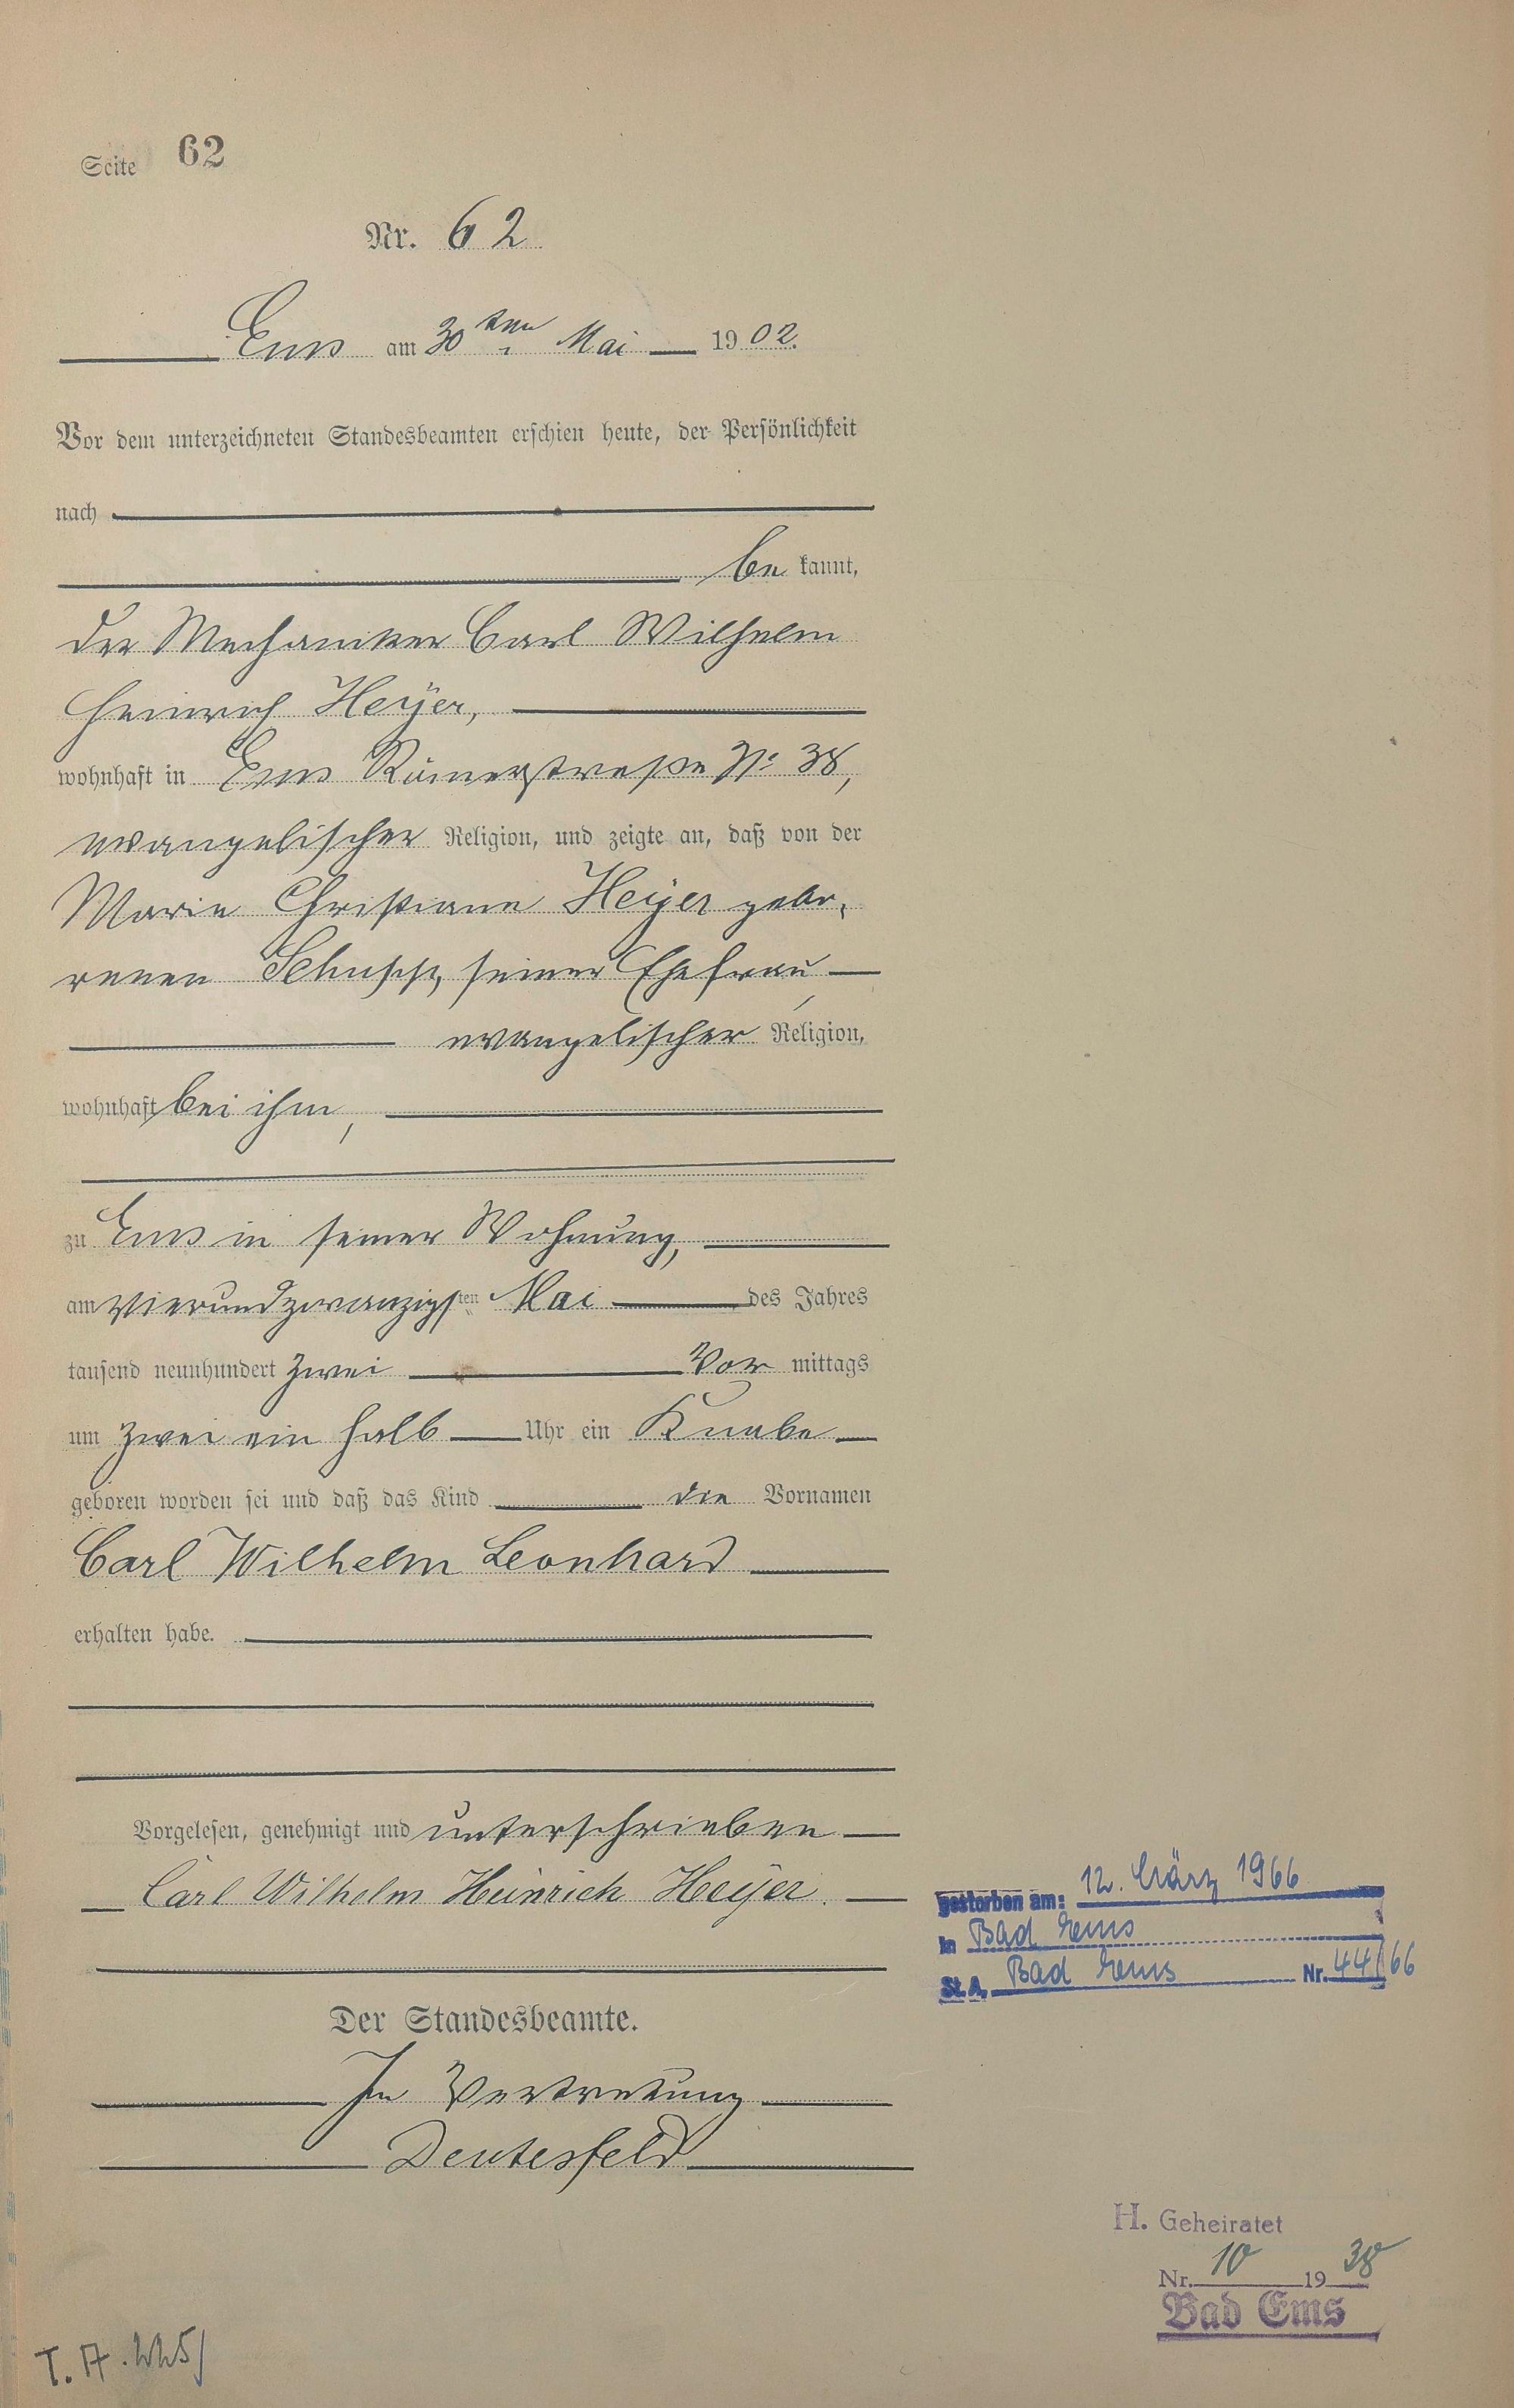 Seite 62
Nr. 62
Ems am 30ten Mai 1902.
Vor dem unterzeichneten Standesbeamten erschien heute, der Persönlichkeit
nach
be kannt,
der Mechaniker Carl Wilhelm
Heinrich Heyer,
wohnhaft in Ems Römerstraße No 38,
evangelischer Religion, und zeigte an, daß von der
Marie Christiane Heyer gebo-
renen Schupp, seiner Ehefrau,
evangelischer Religion,
wohnhaft bei ihm,
zu Ems in seiner Wohnung,
am vierundzwanzigsten Mai des Jahres
tausend neunhundert zwei Vor mittags
um zwei ein halb Uhr ein Knabe
geboren worden sei und daß das Kind die Vornamen
Carl Wilhelm Leonhard
erhalten habe.
Vorgelesen, genehmigt und unterschrieben
Carl Wilhelm Heinrich Heyer.
Der Standesbeamte.
In Vertretung
Deutesfeld
gestorben am: 12. März 1966
in Bad Ems
St. A. Bad Ems Nr. 44/66
H. Geheiratet
Nr. 10 1938
Bad Ems